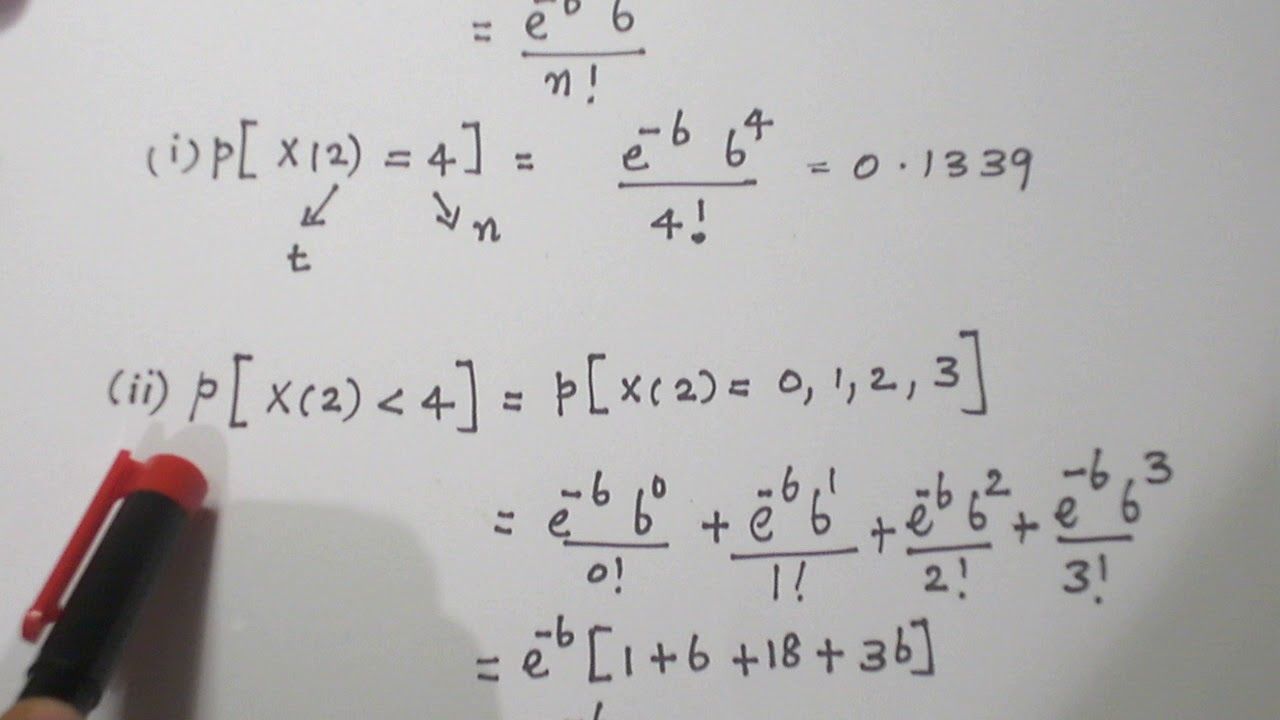 = e^-6 6
n!
(i) P[ X(2) = 4 ] = e^-6 6^4 / 4! = 0.1339
t n
(ii) P[ X(2) < 4 ] = P[ X(2) = 0, 1, 2, 3 ]
= e^-6 6^0 / 0! + e^-6 6^1 / 1! + e^-6 6^2 / 2! + e^-6 6^3 / 3!
= e^-6 [ 1 + 6 + 18 + 36 ]